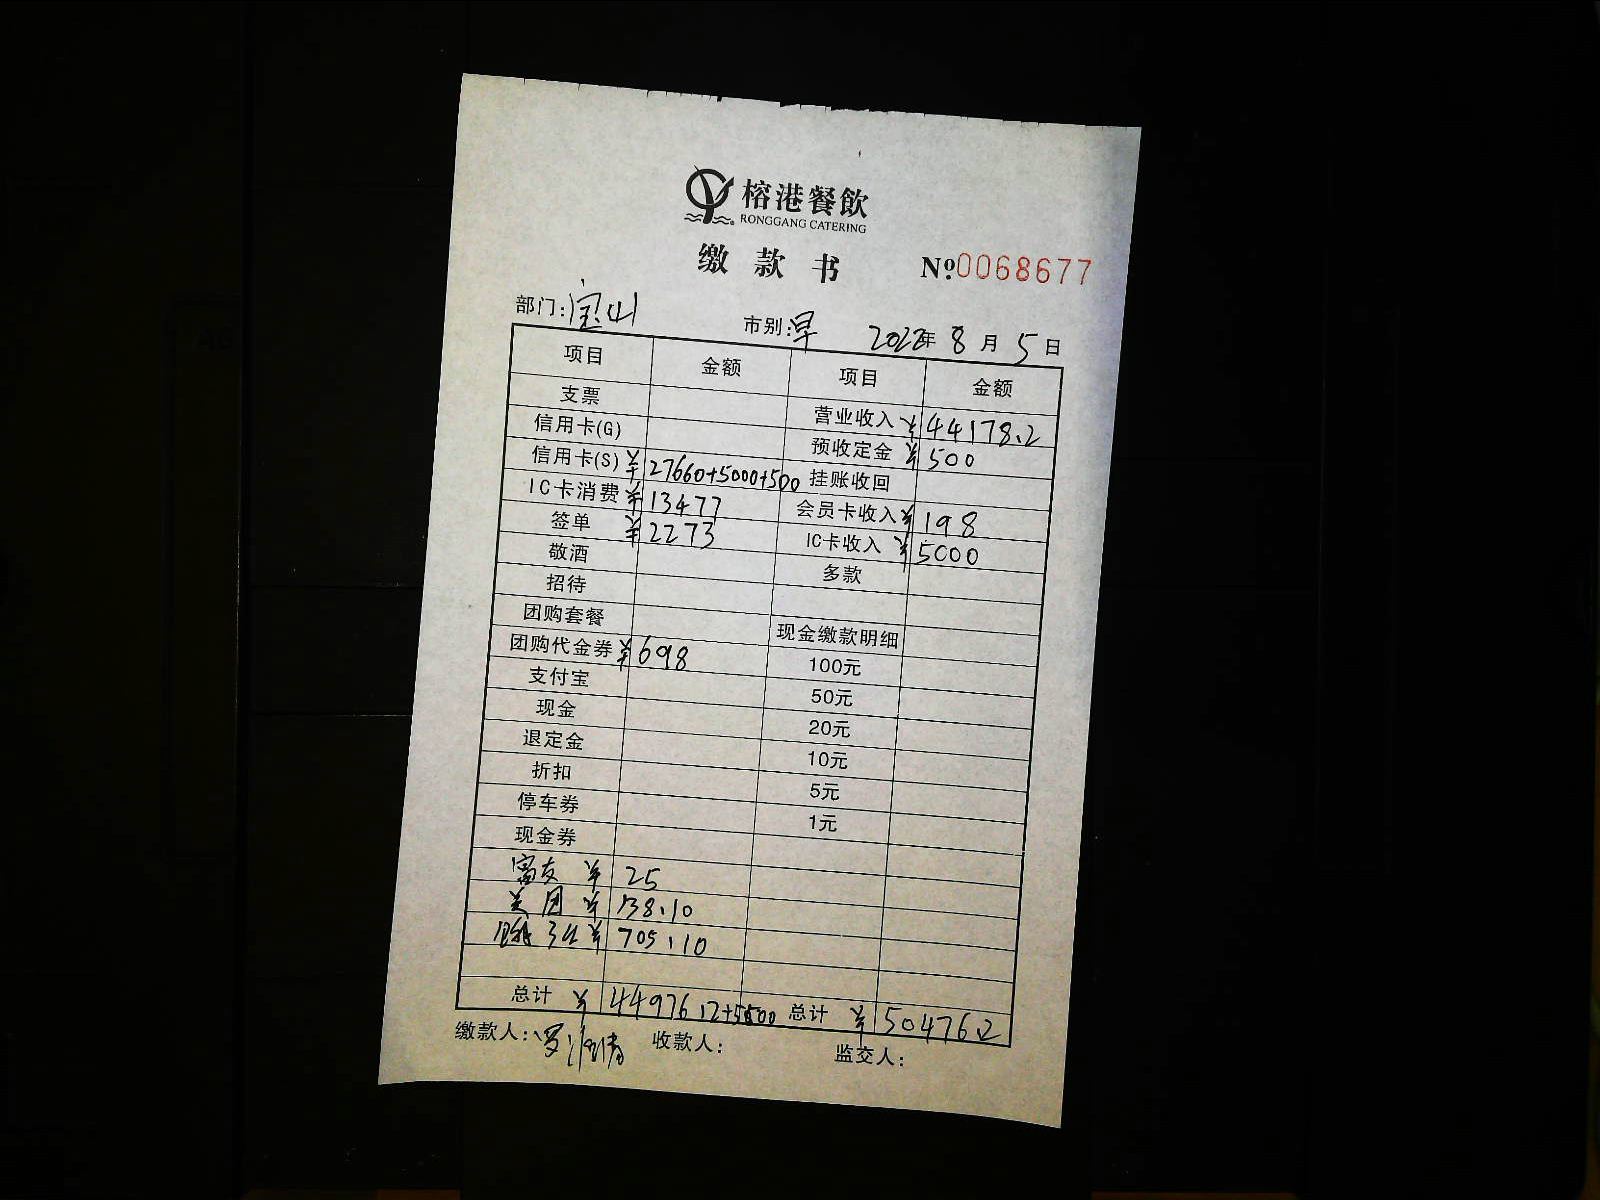 榕港餐飲
RONGGANG CATERING
缴款书 №0068677
部门:宝山 市别:早 2022年 8月 5日
项目 金额 项目 金额
支票 营业收入 ¥44178.2
信用卡(G) 预收定金 ¥500
信用卡(S) ¥27660+5000+500 挂账收回
IC卡消费 ¥13477 会员卡收入 ¥198
签单 ¥2273 IC卡收入 ¥5000
敬酒 多款
招待
团购套餐 现金缴款明细
团购代金券 ¥698 100元
支付宝 50元
现金 20元
退定金 10元
折扣 5元
停车券 1元
现金券
富友 ¥25
美团 ¥138.10
¥705.10
总计 ¥44976.2+5500 总计 ¥50476.2
缴款人: 收款人: 监交人: